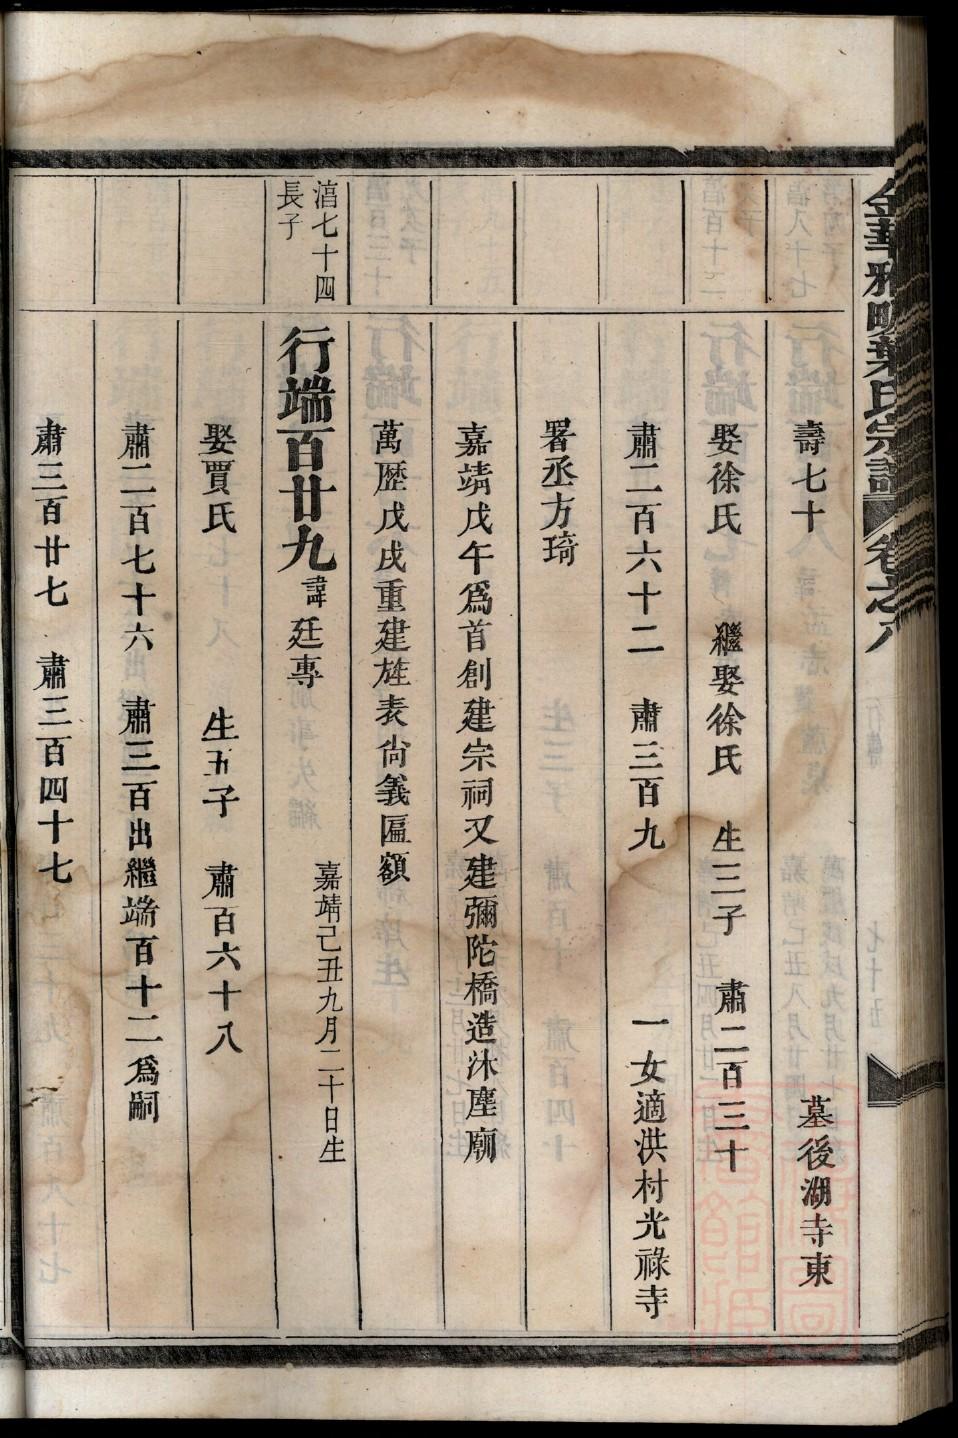 金華雅畈葉氏宗譜 卷之八
壽七十 墓後湖寺東
娶徐氏 繼娶徐氏 生三子 肅二百三十
肅二百六十二 肅三百九 一女適洪村光祿寺
署丞方琦
嘉靖戊午爲首創建宗祠又建彌陀橋造沐塵廟
萬歷戊戌重建旌表尙義匾額
湻七十四
長子
行端百廿九 諱廷專 嘉靖己丑九月二十日生
娶賈氏 生五子 肅百六十八
肅二百七十六 肅三百出繼端百十二爲嗣
肅三百廿七 肅三百四十七